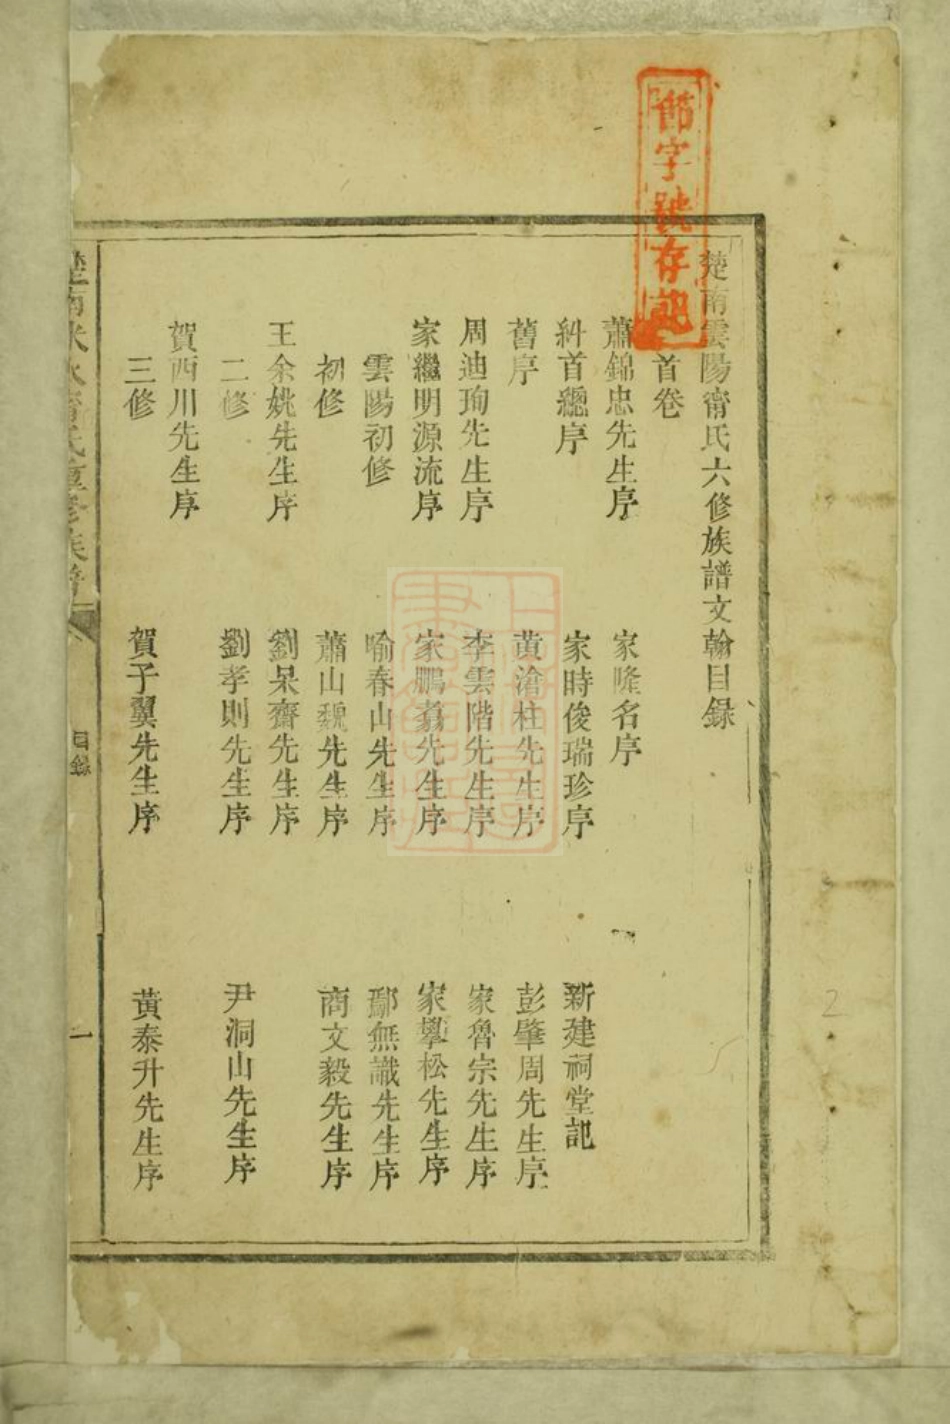 楚南雲陽甯氏六修族譜文翰目錄
首卷
蕭錦忠先生序 家隆名序
糾首總序 家時俊瑞珍序 新建祠堂記
舊序 黃滄柱先生序 彭肇周先生序
周迪珣先生序 李雲階先生序 家魯宗先生序
家繼明源流序 家鵬翥先生序 家擧松先生序
雲陽初修 喻春山先生序 鄢無識先生序
初修 蕭山魏先生序 商文毅先生序
王余姚先生序 劉呆齋先生序
二修 劉孝則先生序 尹洞山先生序
賀西川先生序
三修 賀子翼先生序 黃泰升先生序
目錄
一
字號存記